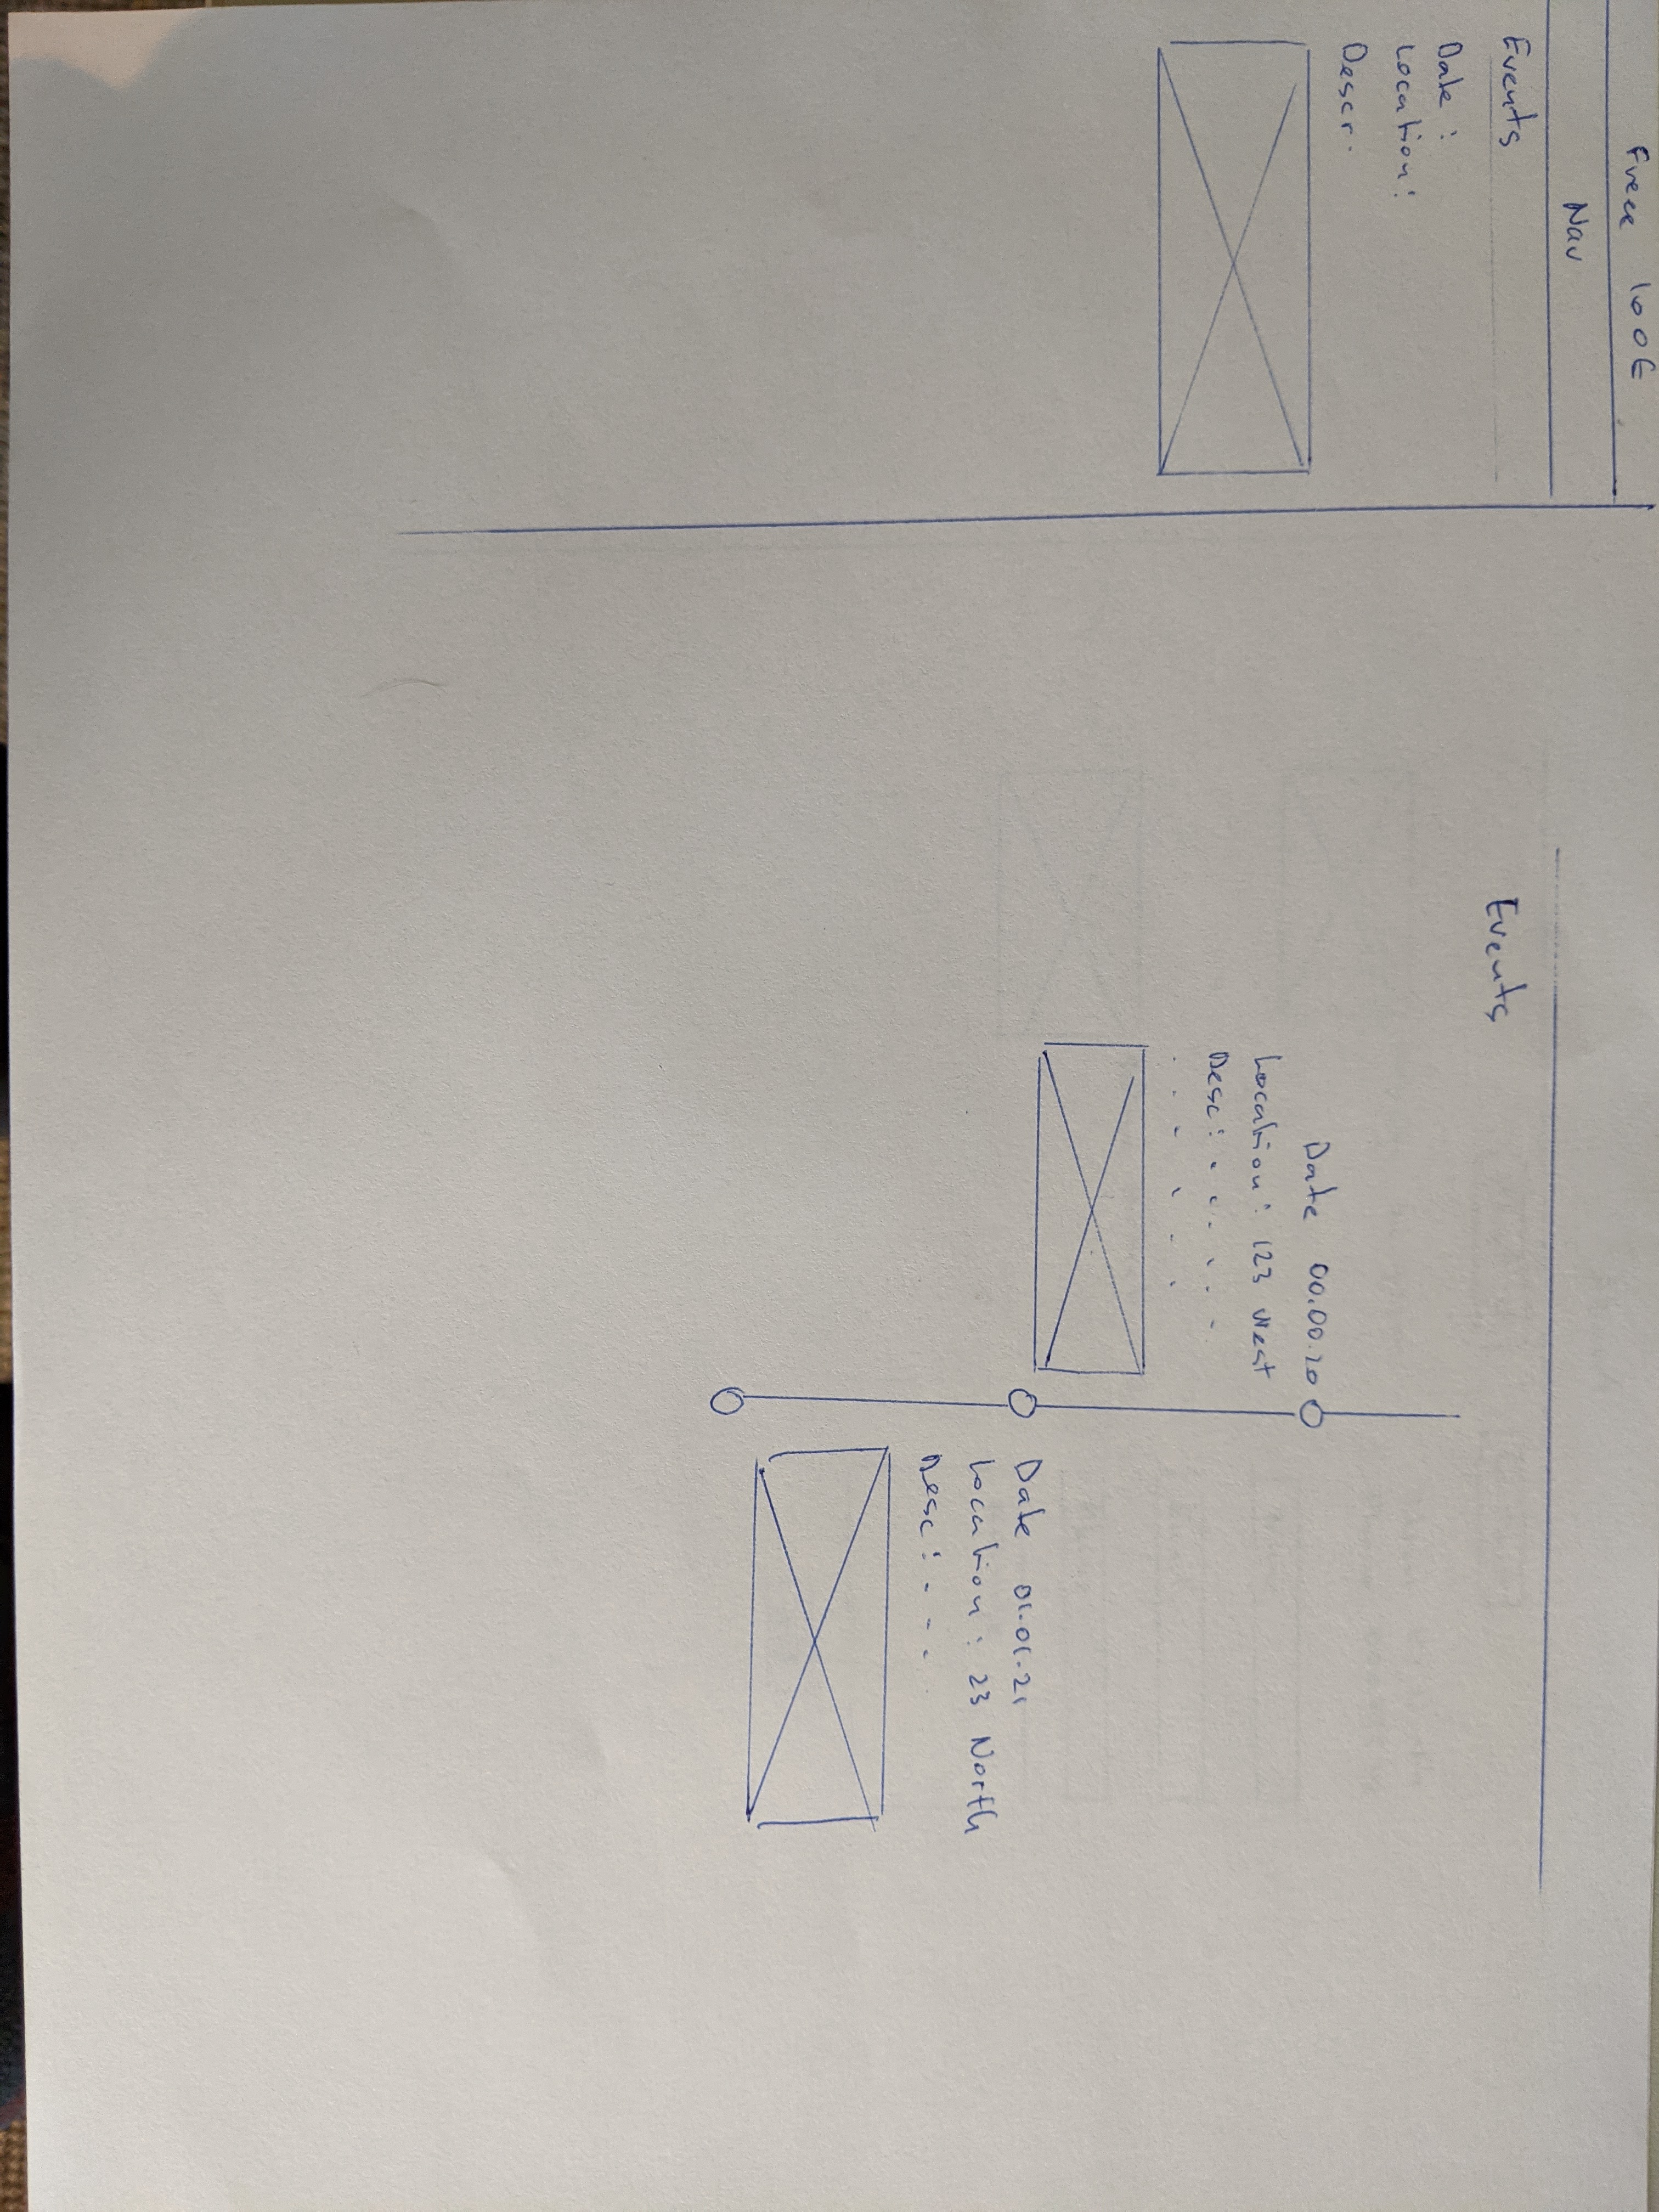 Freee 100€
Nav
Events
Date :
Location:
Descr.
Events
Date 00.00.20
Location: 123 West
Desc: . . . . . .
. . . . . .
Date 01.01.21
Location : 23 North
Desc: . . .